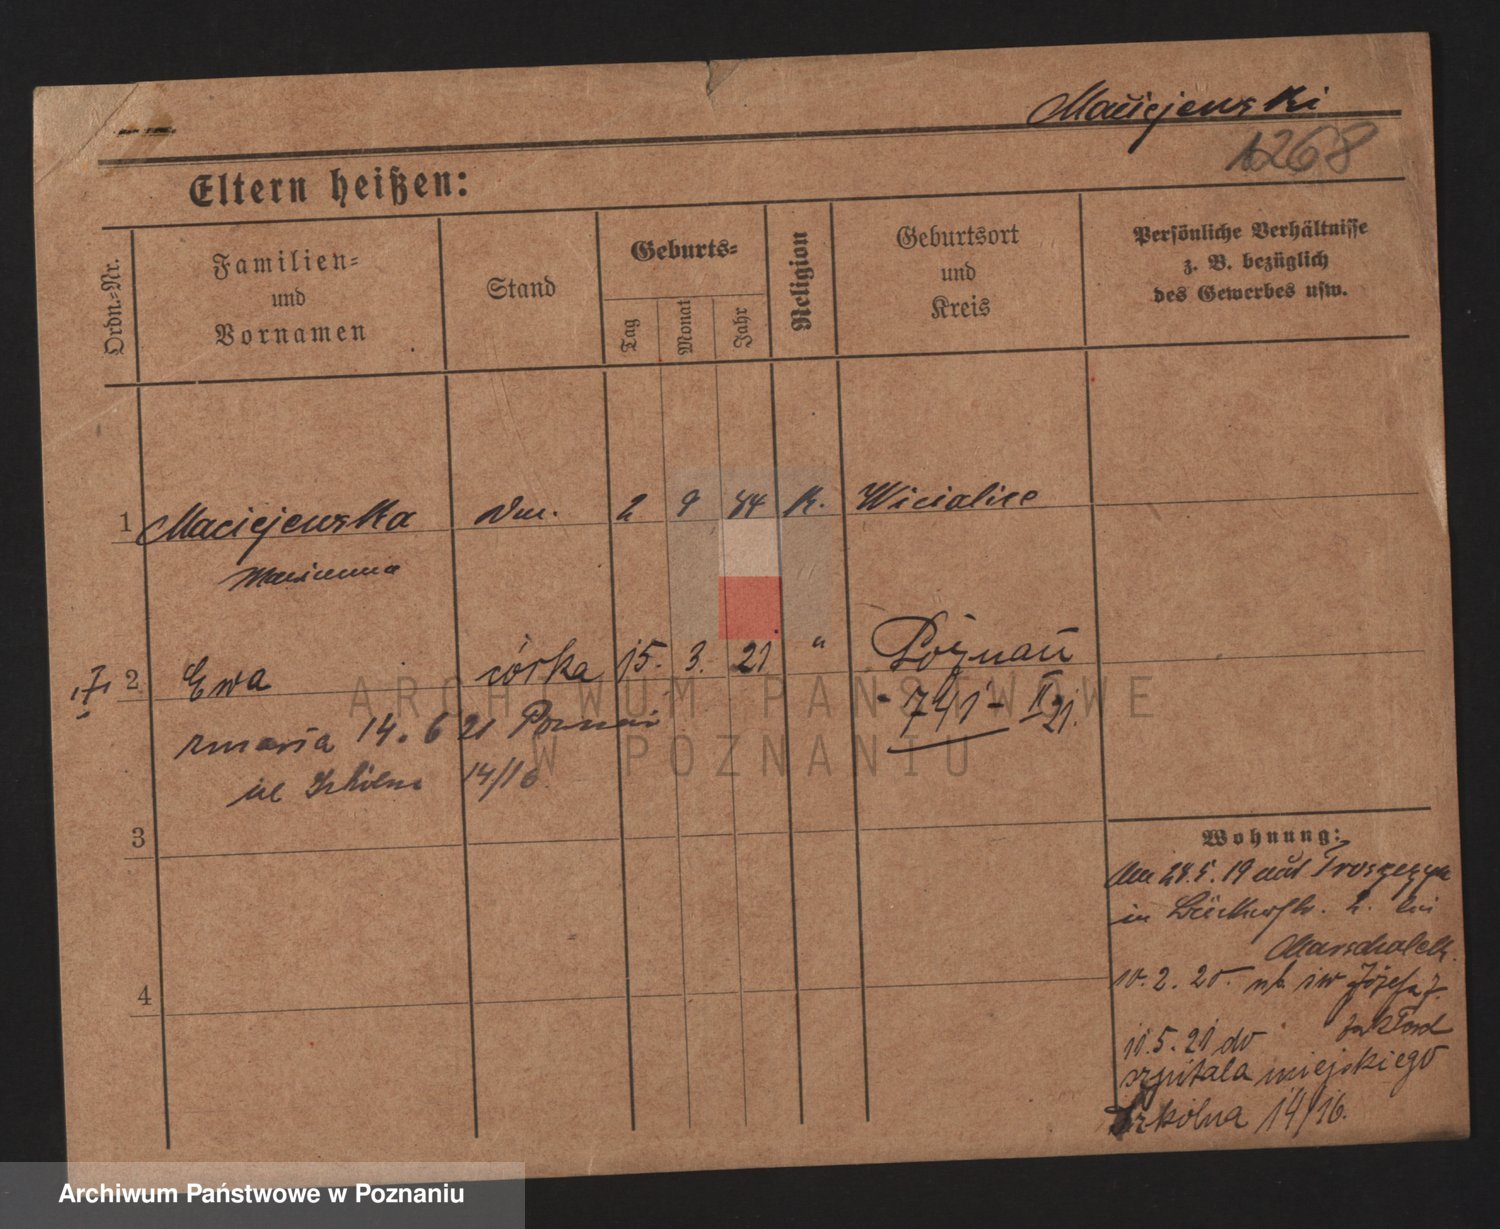 Maciejewski
1268
Eltern heißen:
Ordn.-Nr.
Familien- und Vornamen
Stand
Geburts-
Tag
Monat
Jahr
Religion
Geburtsort und Kreis
Persönliche Verhältnisse z. B. bezüglich des Gewerbes usw.
1 Maciejewska 2 9 84 K.
Marianna
2 Ewa córka 15. 3. 21 " Poznań
- 741 - II 21.
zmarła 14. 6 21 Poznań
ul Szkolna 14/16
3
4
Wohnung:
Am 24.5.19 aus
in 2. bei
10. 2. 20. św Józefa 7.
11.5.21 do
szpitala miejskiego
Szkolna 14/16.
ARCHIWUM PAŃSTWOWE
W POZNANIU
Archiwum Państwowe w Poznaniu